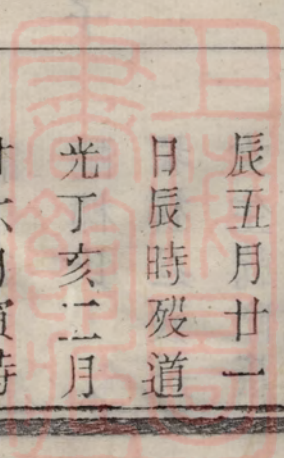 辰五月廿一
日辰時殁道
光丁亥二月
寅時